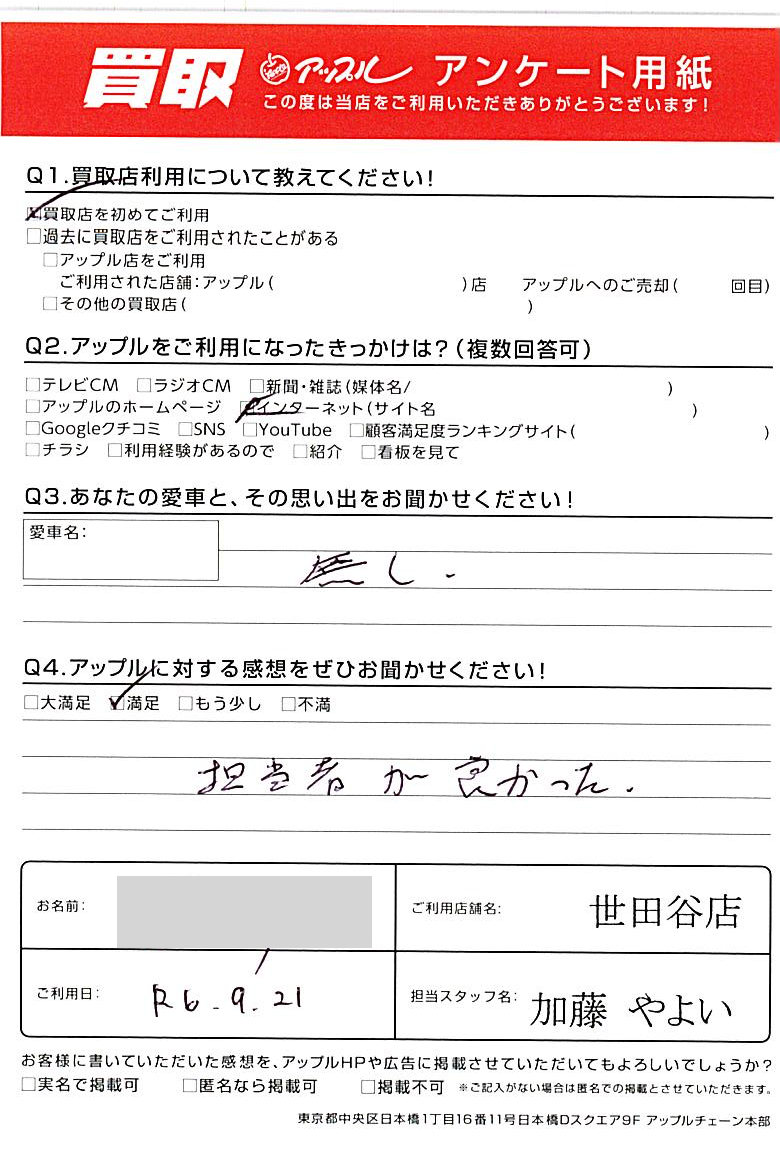 買取 アップル アンケート用紙
この度は当店をご利用いただきありがとうございます!
Q1.買取店利用について教えてください!
☑買取店を初めてご利用
□過去に買取店をご利用されたことがある
□アップル店をご利用
ご利用された店舗:アップル( )店 アップルへのご売却( 回目)
□その他の買取店( )
Q2.アップルをご利用になったきっかけは?(複数回答可)
□テレビCM □ラジオCM □新聞・雑誌(媒体名/ )
□アップルのホームページ ☑インターネット(サイト名 )
□Googleクチコミ □SNS □YouTube □顧客満足度ランキングサイト( )
□チラシ □利用経験があるので □紹介 □看板を見て
Q3.あなたの愛車と、その思い出をお聞かせください!
愛車名:
無し.
Q4.アップルに対する感想をぜひお聞かせください!
□大満足 ☑満足 □もう少し □不満
担当者が良かった.
お名前:
ご利用店舗名: 世田谷店
ご利用日: R6.9.21
担当スタッフ名: 加藤 やよい
お客様に書いていただいた感想を、アップルHPや広告に掲載させていただいてもよろしいでしょうか?
□実名で掲載可 □匿名なら掲載可 □掲載不可 ※ご記入がない場合は匿名での掲載とさせていただきます。
東京都中央区日本橋1丁目16番11号日本橋Dスクエア9F アップルチェーン本部